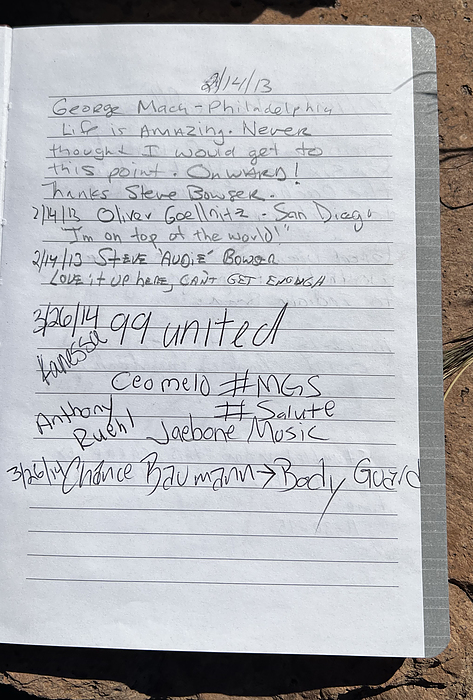 2/14/13
George Mach - Philadelphia
Life is Amazing. Never
thought I would get to
this point. Onward!
Thanks Steve Bowser.
2/14/13 Oliver Goellnitz - San Diego
"I'm on top of the world!"
2/14/13 STEVE "AUDIE" BOWSER
LOVE it UP here, CAN'T GET ENOUGH
3/26/14 99 united
Vanessa
Ceomelo #MGS
Anthony #Salute
Ruehl Jaebone Music
3/26/14 Chance Baumann → Body Guard